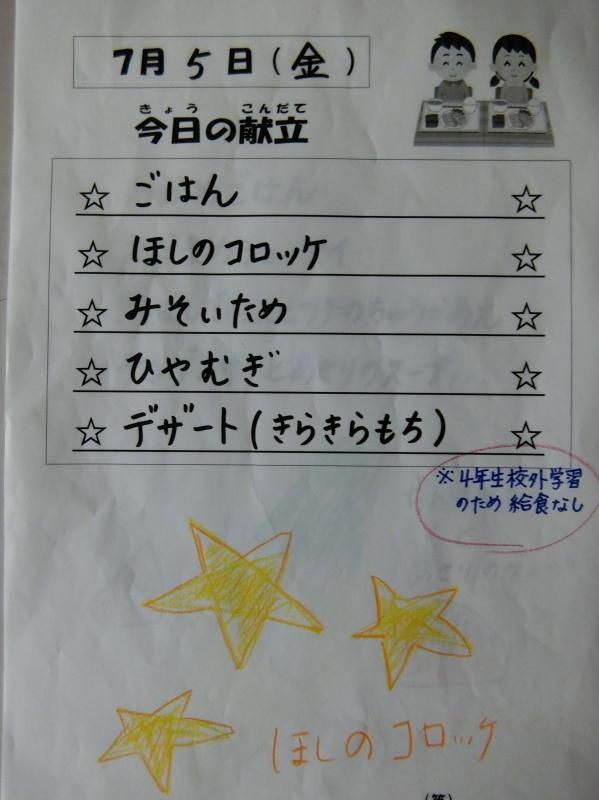 7月5日(金)
きょう こんだて
今日の献立
☆ ごはん ☆
☆ ほしのコロッケ ☆
☆ みそいため ☆
☆ ひやむぎ ☆
☆ デザート(きらきらもち) ☆
※4年生校外学習
のため給食なし
ほしのコロッケ